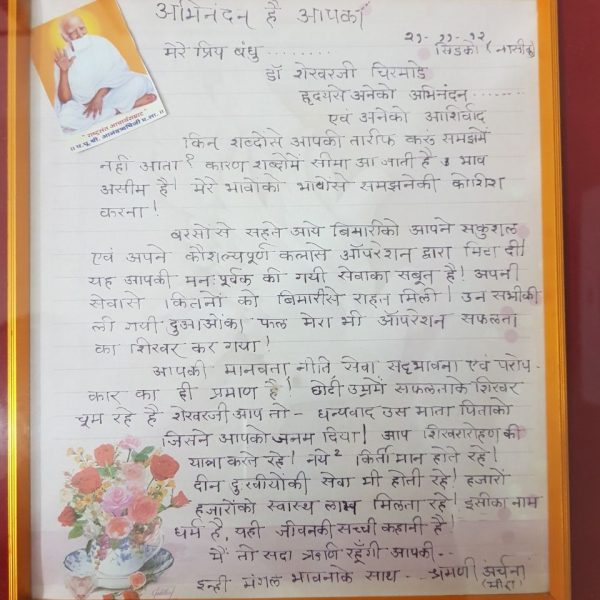 अभिनंदन है आपका
२५-११-१२
मेरे प्रिय बंधु ........ सिडको (नासीक)
डॉ शेखरजी चिरमाडे
हृदयसे अनेको अभिनंदन .......
एवं अनेको आशिर्वाद
"राष्ट्रसंत आचार्यसम्राट"
॥ प. पू. श्री. आनंदऋषिजी म. सा. ॥
किन शब्दोसे आपकी तारीफ करुं समझमें
नहीं आता? कारण शब्दोमें सीमा आ जाती है। भाव
असीम है। मेरे भावोको भावोसे समझनेकी कोशिश
करना!
बरसोसे सहते आये बिमारीको आपने सकुशल
एवं अपने कौशल्यपूर्ण कलासे ऑपरेशन द्वारा मिटा दी।
यह आपकी मनःपूर्वक की गयी सेवाका सबूत है! अपनी
सेवासे कितनों को बिमारीसे राहत मिली। उन सभीकी
ली गयी दुआओंका फल मेरा भी ऑपरेशन सफलता
का शिखर कर गया!
आपकी मानवता नीति, सेवा सद्भावना एवं परोप-
कार का ही प्रमाण है! छोटी उम्रमें सफलताके शिखर
चूम रहे है शेखरजी आप तो - धन्यवाद उस माता पिताको
जिसने आपको जनम दिया! आप शिखरारोहण की
यात्रा करते रहे! नये २ किर्तीमान होते रहे!
दीन दुःखीयोंकी सेवा भी होती रहे! हजारों
हजारोंको स्वास्थ लाभ मिलता रहे! इसीका नाम
धर्म है, यही जीवनकी सच्ची कहानी है!
मैं तो सदा ऋणी रहूँगी आपकी--
इन्ही मंगल भावनाके साथ -- श्रमणी अर्चना
(मीरा)